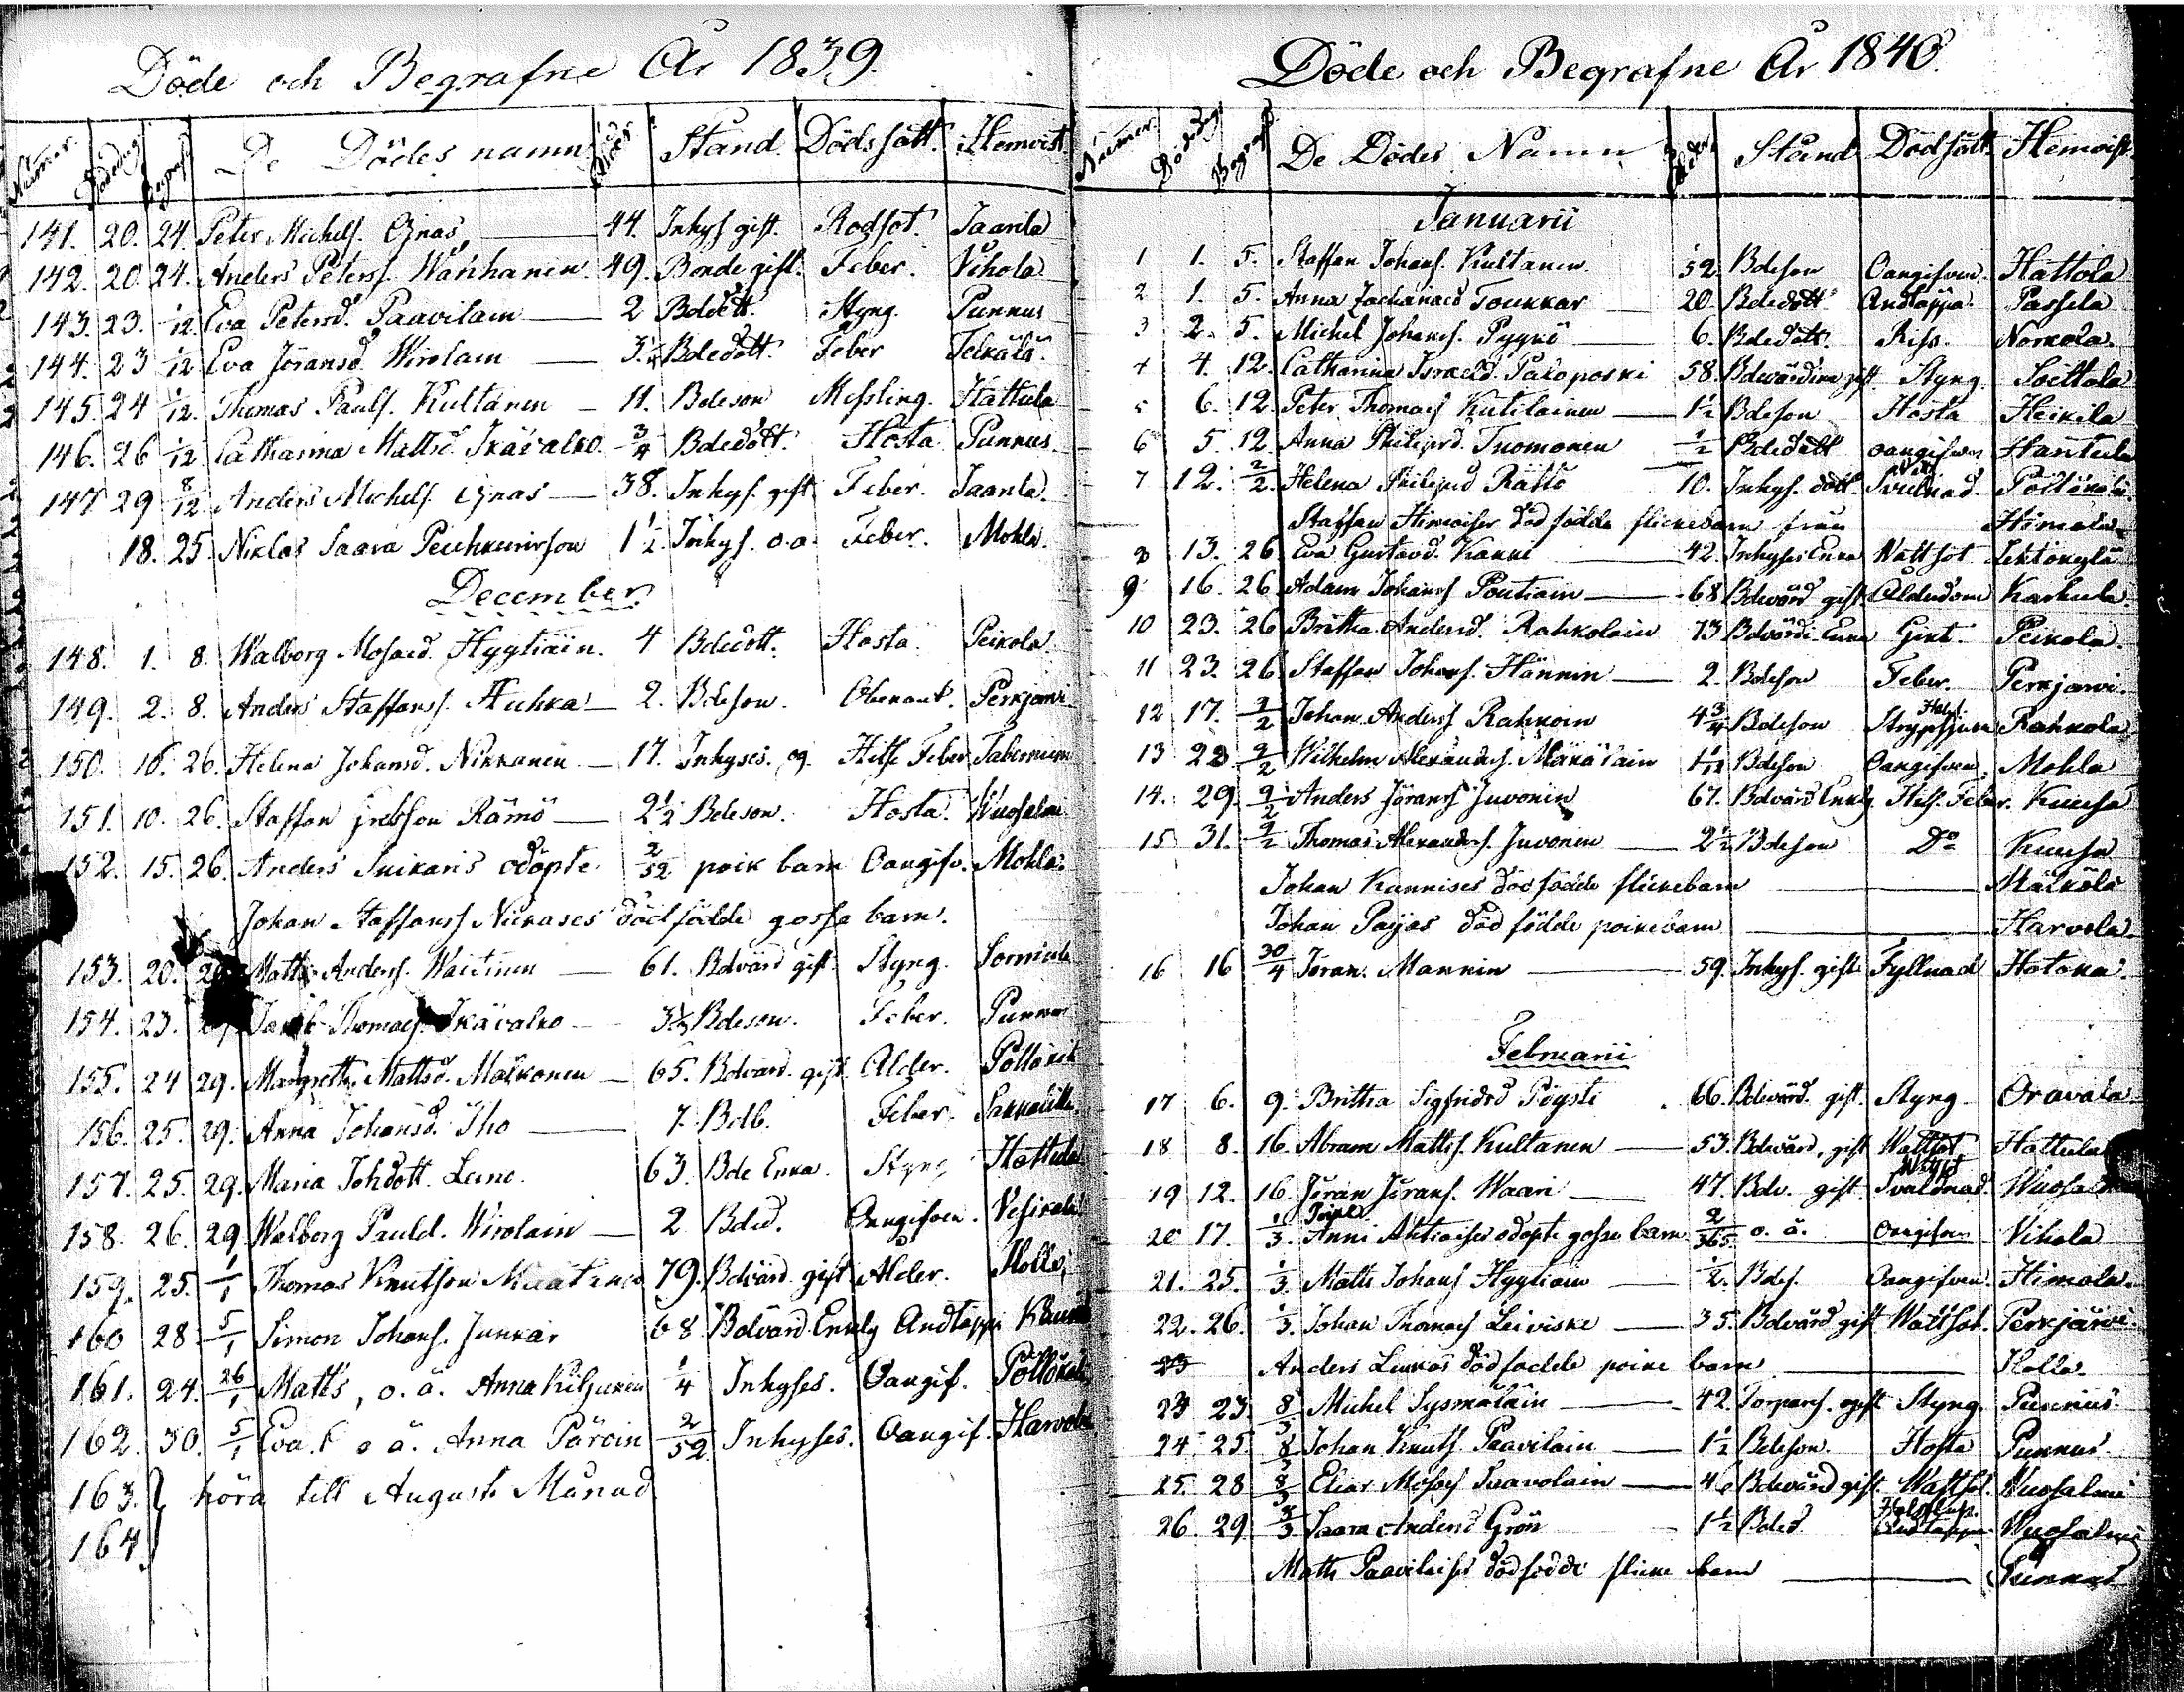 Döde och Begrafne År 1839.
Numer. Dödedag Begrafn. De Dödes namn Ålder Stånd. Dödssätt. Hemvist.
141. 20. 24. Peter Michelss. Ojnas 44. Inhys gift. Rodsot. Jaarila
142. 20 24. Anders Peterss. Wanhanen 49. Bonde gift. Feber. Vihola
143. 23. 1/12. Eva Petersd. Paavilain 2 Bdedott. Styng. Punnus
144. 23 1/12 Eva Jöransd. Wirolain 3 1/4 Bdedött. Feber Telkälä.
145. 24 1/12. Thomas Pauls. Kultanen 11. Bdeson Messling. Hattula
146. 26 1/12 Catharina Mattsd. Ikävalko. 3/4 Bdedött. Hosta Punnus.
147 29 8/12 Anders Michelss. Ojnas 38. Inhys. gift Feber. Jaarila.
18. 25 Niklas Saara Peuhkurirson 1 1/2. Inhys. o.ä. Feber. Mohla.
December
148. 1. 8. Walborg Mosaed. Hyytiäin. 4 Bdedott. Hosta. Peikola
149. 2. 8. Anders Staffanss. Huhka 2. Bdeson. Obekant. Perkjärvi
150. 16. 26. Helena Johansd. Nikkanen 17. Inhyses. og. Hitse Feber
151. 10. 26. Staffan Rämö 2 1/2 Bdeson. Hosta. Wuosalmi
152. 15. 26. Anders Suikaris odöpte 2/52 poik barn Oangifv. Mohla.
Johan Staffanss Niukases dödfödde gosse barn.
153. 20. Matts Anderss. Waittinen 61. Bdvärd gift. Styng.
154. 23. Thomass. Ikävalko 3 1/2 Bdeson. Feber. Punnus
155. 24 29. Margretha Mattsd. Mälkönen 65. Bdvärd. gift. Ålder. Pöllökäl
156. 25. 29. Anna Johansd. Iho 7. Bdb. Feber.
157. 25. 29. Maria Johdott. Leino. 63. Bde Enka. Styng Hattula
158. 26. 29 Walborg Paulsd. Wirolain 2 Bded. Oangifven.
159. 25. 1/1 Thomas Knutson 79. Bdvärd gift Ålder. Holle
160 28 5/1 Simon Johanss. Junkar 68 Bdvärd Enklg Andtäppa
161. 24. 26/1 Matts, o. ä. Anna Kiljunen 1/4 Inhyses. Oangif. Pöllökälä
162. 30. 5/1 Eva o ä. Anna Pärrin 2/52 Inhyses. Oangif. Harvola
163. } höra till Augusti Månad
164 }
Döde och Begrafne År 1840.
Numer Dödedag Begrafn De Dödes Namn Ålder Stånd Dödsätt. Hemvist.
Januarii
1 1. 5. Staffan Johanss. Kultanen. 52 Bdeson Oangifven. Hattola
2 1. 5. Anna Zachariaed Toukkar 20. Bdedött Andtäppa. Passela
3 2. 5. Michel Johanss. Pyykö 6. Bdedött. Riss. Norkola.
4 4. 12. Catharina Israelsd. Paloposki 58. Bdevärdina gift Styng Soittola
5 6. 12. Peter Thomass Kutilainen 1 1/2 Bdeson Hosta Heikila
6 5. 12. Anna Philipsd. Tuomonen 1/2 Bdedött oangifven Hantula
7 12. 2/2. Helena Philipsd Rättö 10. Inhys. dött. Pöllökälä.
Staffan Himoiser död födde flickebarn från Himola
8 13. 26 Eva Gustavd. Kanni 42. Inhyses Enka Wattsot
9 16. 26 Adam Johanss Pontiain 68 Bdevärd gift Ålderdom Karhula.
10 23. 26 Britha Andersd. Rahkolain 73 Bdvärdi Enka Gikt. Peikola.
11 23. 26 Staffan Johanss. Hännin 2. Bdeson Feber. Perkjärvi.
12 17. 2/2 Johan Anderss Rahkoin 4 3/4 Bdeson Hals Strypsjuka Rahkola
13 22 2/2 Wilhelm Alexanders. 1 1/12 Bdeson Oangifven. Mohla
14. 29. 2/2 Anders Jöranss Juvonin 67. Bdvärd Enklg Hits. Feber. Kuusa
15 31. 2/2 Thomas Alexanders. Juvonen 2 1/2 Bdeson Do Kuusa
Johan Kunnises död födde flickebarn Mälkölä
Johan Paijas död födde poikebarn Harvola.
16 16 30/4 Jöran. Mannin 59. Inhys. gift Fyllnad Hotoka.
Februarii
17 6. 9. Britha Sigfridsd Pöysti 66. Bdevärd. gift. Styng Oravala.
18 8. 16. Abram Mattss. Kultanen 53. Bdvärd, gift Wattsot Hattula
19 12. 16. Jöran Jöranss. Waari 47. Bdv. gift Svullnad. Wuosalmi
20 17. 1/3. Anni Ahtiaises odöpte gosse barn 2/365. o. ä. Oangifven Vihola
21. 25. 1/3. Matts Johanss Hyytiäin 1/2. Bdes. Oangifven Himola.
22. 26. 1/3. Johan Thomass Leiviske 35. Bdvärd gift Wattsot. Perkjärvi.
23 Anders Lukkas död födde poike barn Holla.
23 23. 8/3 Michel Sysmäläin 42. Torpars. gift Styng. Punnus.
24 25. 8/3 Johan Knuts. Paavilain 1 1/2 Bdeson. Hosta Punnus.
25. 28 8/3 Elias Mosess Paavolain Bdevärd gift. Wattsot. Wuosalmi
26. 29. 8/3 Saara Andersd Grön 1 1/2 Bded Wuosalmi
Matts Paavilaises dödfödde flicke barn Punnus